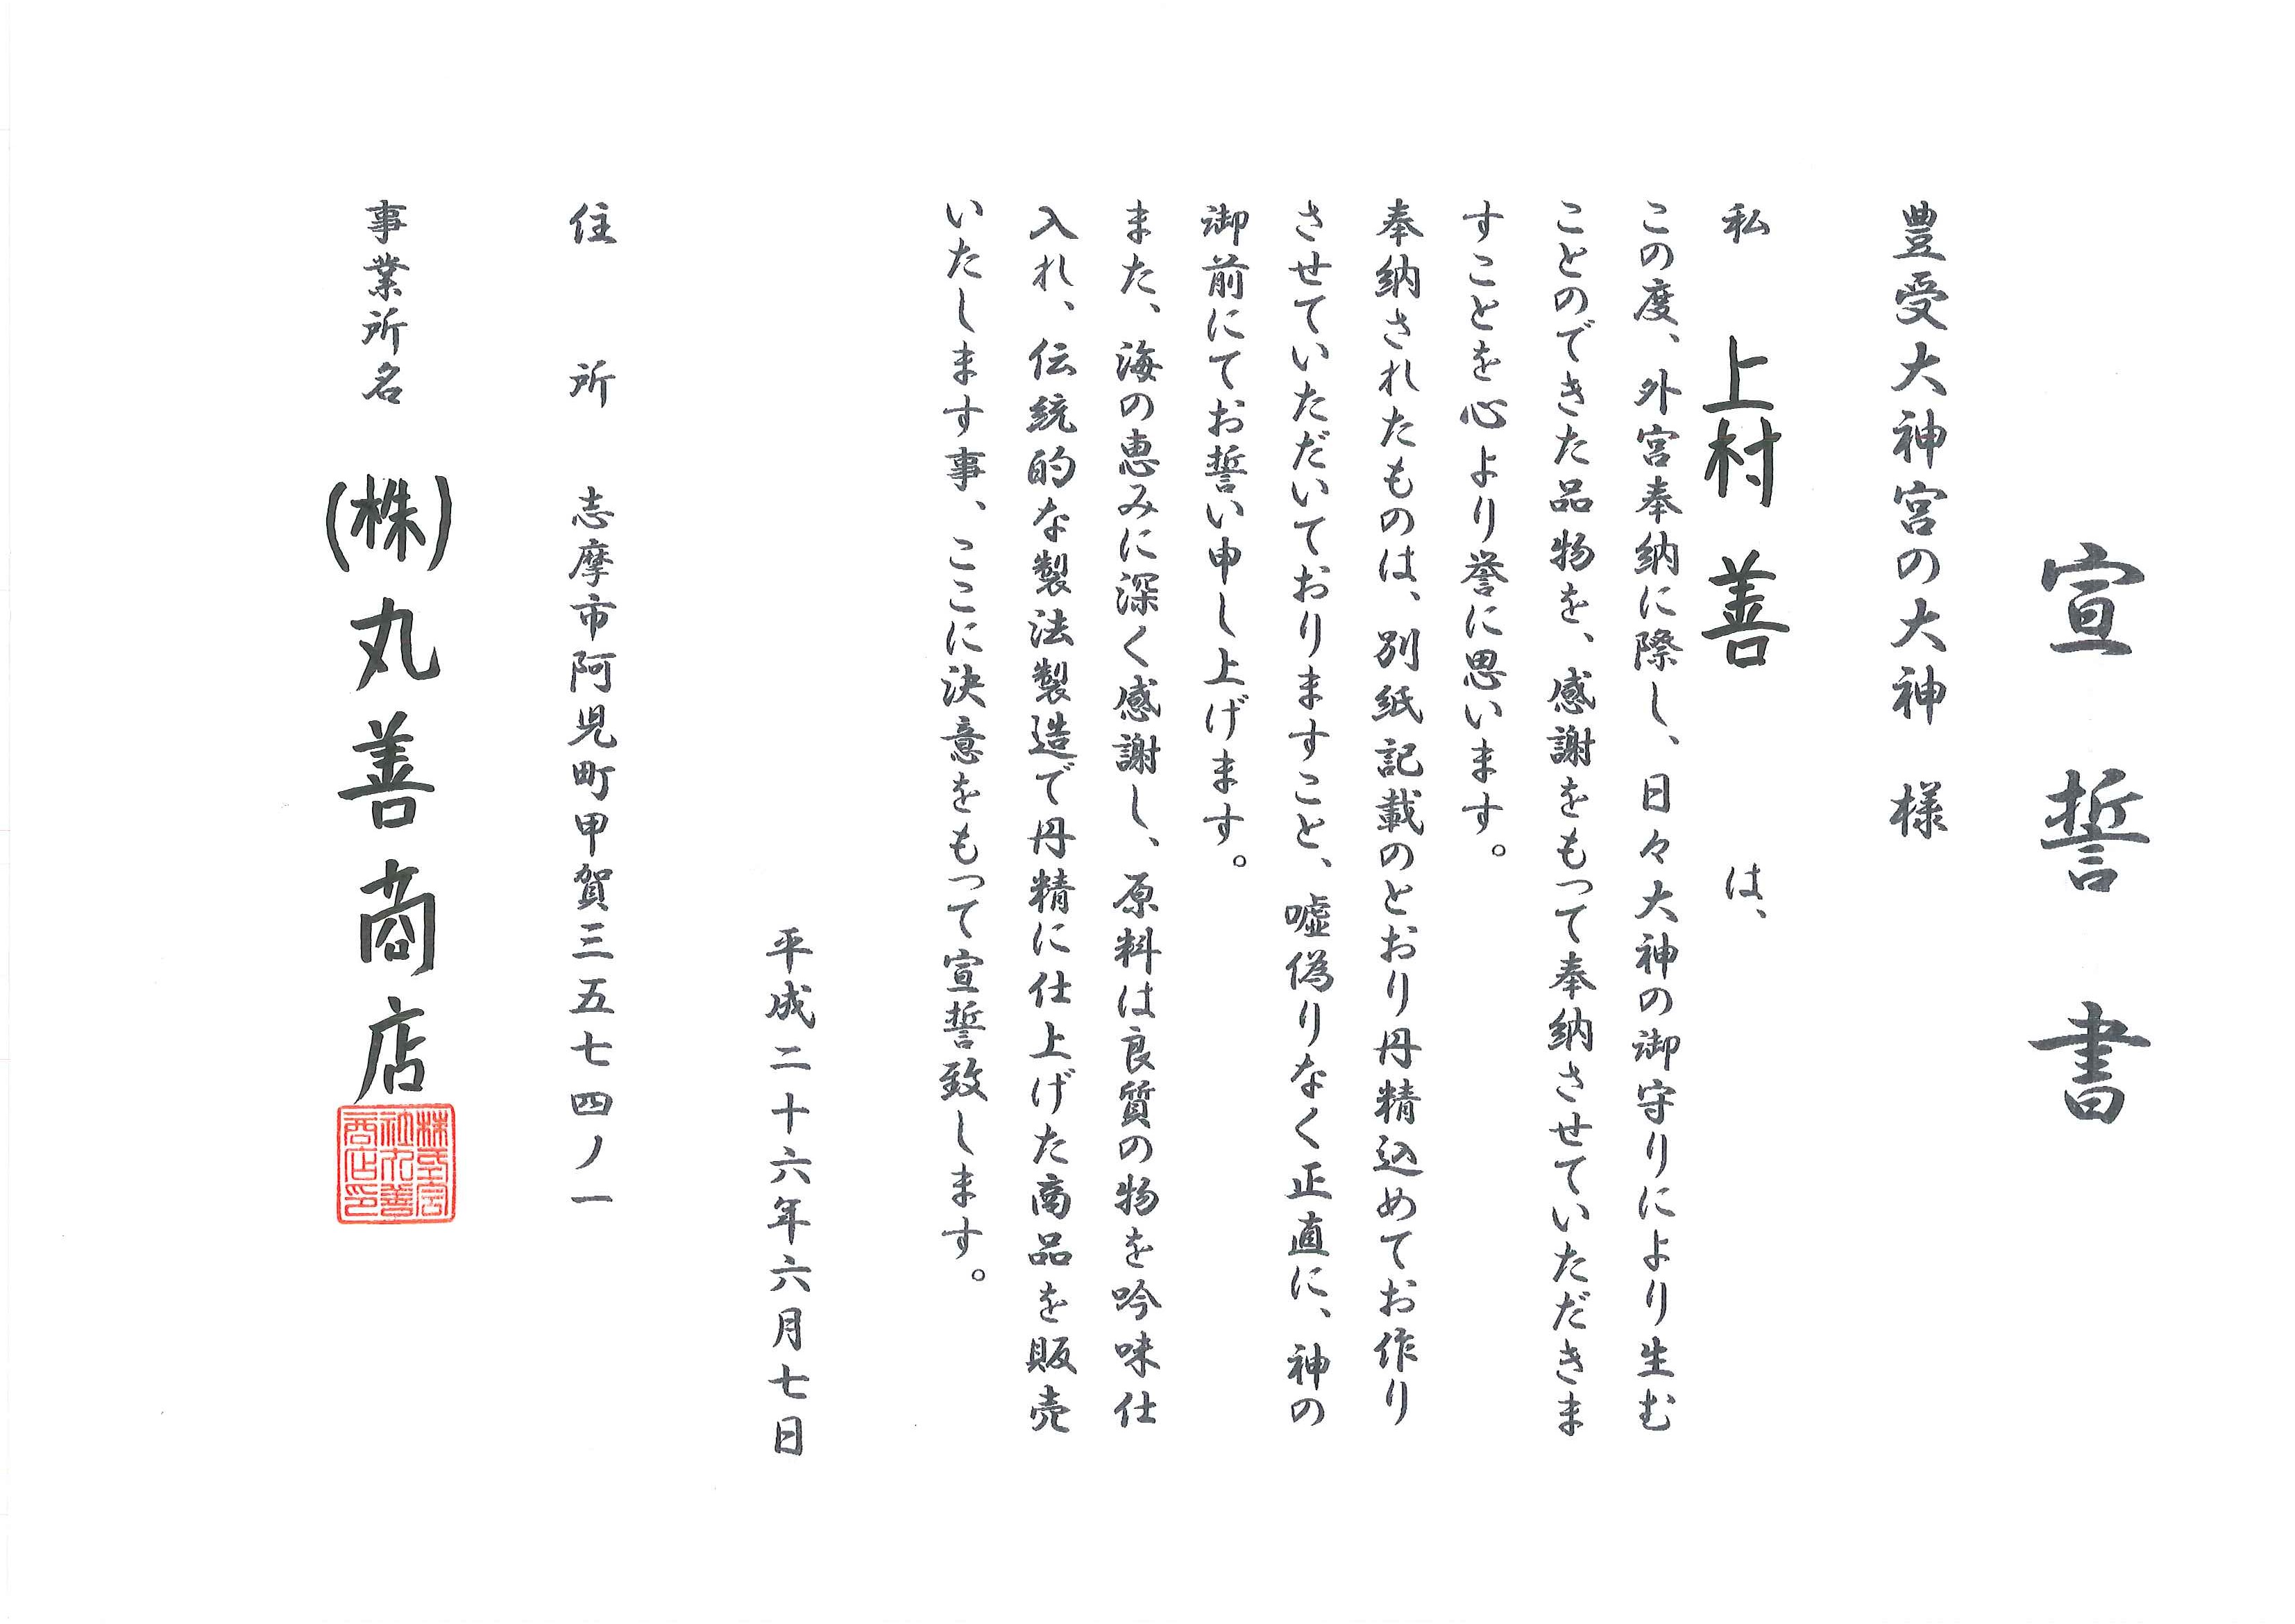 宣誓書
豊受大神宮の大神 様
私 上村 善 は、
この度、外宮奉納に際し、日々大神の御守りにより生む
ことのできた品物を、感謝をもって奉納させていただきま
すことを心より誉に思います。
奉納されたものは、別紙記載のとおり丹精込めてお作り
させていただいておりますこと、嘘偽りなく正直に、神の
御前にてお誓い申し上げます。
また、海の恵みに深く感謝し、原料は良質の物を吟味仕
入れ、伝統的な製法製造で丹精に仕上げた商品を販売
いたします事、ここに決意をもって宣誓致します。
平成二十六年六月七日
住所 志摩市阿児町甲賀三五七四ノ一
事業所名 (株)丸善商店
株式会
社丸善
商店印